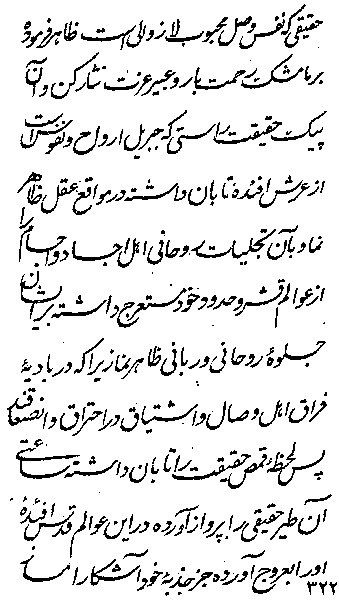 حقیقی که نفس وصل محبوب لا زوالی است ظاهر فرموده
بر ما مشک رحمت بار و عبیر عزت نثار کن و آن
پیک حقیقت راستی که جبریل ارواح و نفوس است
از عرش افئده تابان داشته در مواقع عقل ظاهر
نما و بآن تجلیات روحانی اهل اجساد و اجسام را
از عوالم قشر و حدود خود مستعرج داشته بر ایشان
جلوهٔ روحانی و ربانی ظاهر نما زیرا که در بادیهٔ
فراق اهل وصال و اشتیاق در احتراق و انصعاقند
پس لحظهٔ قمص حقیقت را تابان داشته ساعتی
آن طیر حقیقی را پرواز آورده در این عوالم قدس افئدهٔ
او را بعروج آورده جز جذبه خود آشکارا
٣٢٢